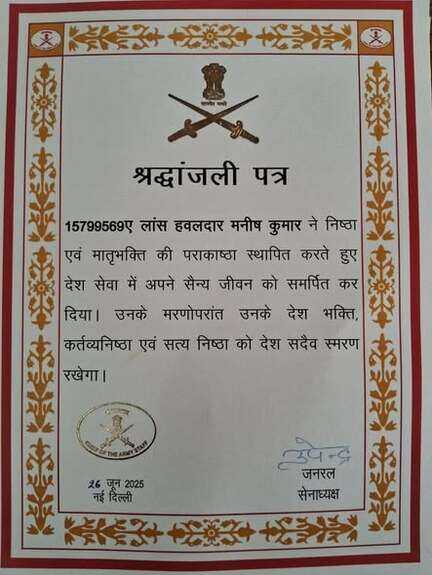 श्रद्धांजली पत्र
15799569ए लांस हवलदार मनीष कुमार ने निष्ठा
एवं मातृभक्ति की पराकाष्ठा स्थापित करते हुए
देश सेवा में अपने सैन्य जीवन को समर्पित कर
दिया। उनके मरणोपरांत उनके देश भक्ति,
कर्तव्यनिष्ठा एवं सत्य निष्ठा को देश सदैव स्मरण
रखेगा।
CHIEF OF THE ARMY STAFF
उपेन्द्र
जनरल
सेनाध्यक्ष
26 जून 2025
नई दिल्ली